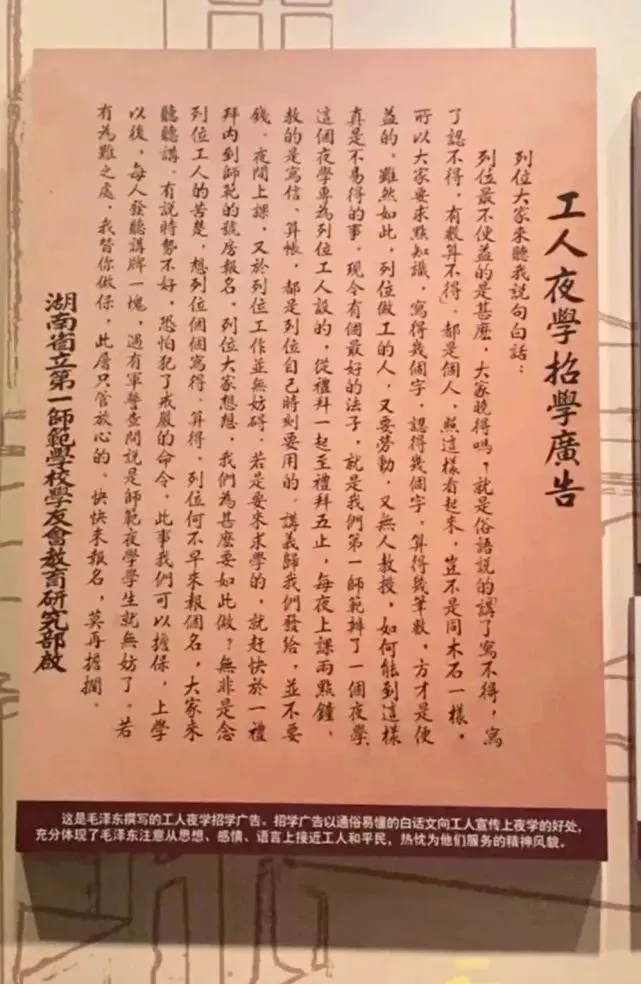 工人夜學招學廣告
列位大家來聽我說句白話：
列位最不便益的是甚麽，大家曉得嗎？就是俗語說的講了寫不得，寫
了認不得，有數算不得。都是個人，照這樣看起來，豈不是同木石一樣。
所以大家要求點知識，寫得幾個字，認得幾個字，算得幾筆數，方才是便
益的。雖然如此，列位做工的人，又要勞動，又無人教授，如何能到這樣
真是不易得的事。現今有個最好的法子，就是我們第一師範辦了一個夜學
這個夜學專為列位工人設的，從禮拜一起至禮拜五止，每夜上課兩點鐘、
教的是寫信、算帳，都是列位自己時刻要用的。講義歸我們發給，並不要
錢。夜間上課，又於列位工作並無妨碍。若是要來求學的，就赶快於一禮
拜内到師範的號房報名。列位大家想想，我們為甚麽要如此做？無非是念
列位工人的苦楚，想列位個個寫得、算得。列位何不早來報個名，大家來
聽聽講。有說時勢不好，恐怕犯了戒嚴的命令，此事我們可以擔保，上學
以後，每人發聽講牌一塊，遇有軍警查問說是師範夜學學生就無妨了。若
有為難之處，我替你做保，此層只管放心的。快快來報名，莫再擔擱。
湖南省立第一師範學校學友會教育研究部啟
這是毛泽东撰写的工人夜学招学广告。招学广告以通俗易懂的白话文向工人宣传上夜学的好处，
充分体现了毛泽东注意从思想、感情、语言上接近工人和平民，热忱为他们服务的精神风貌。